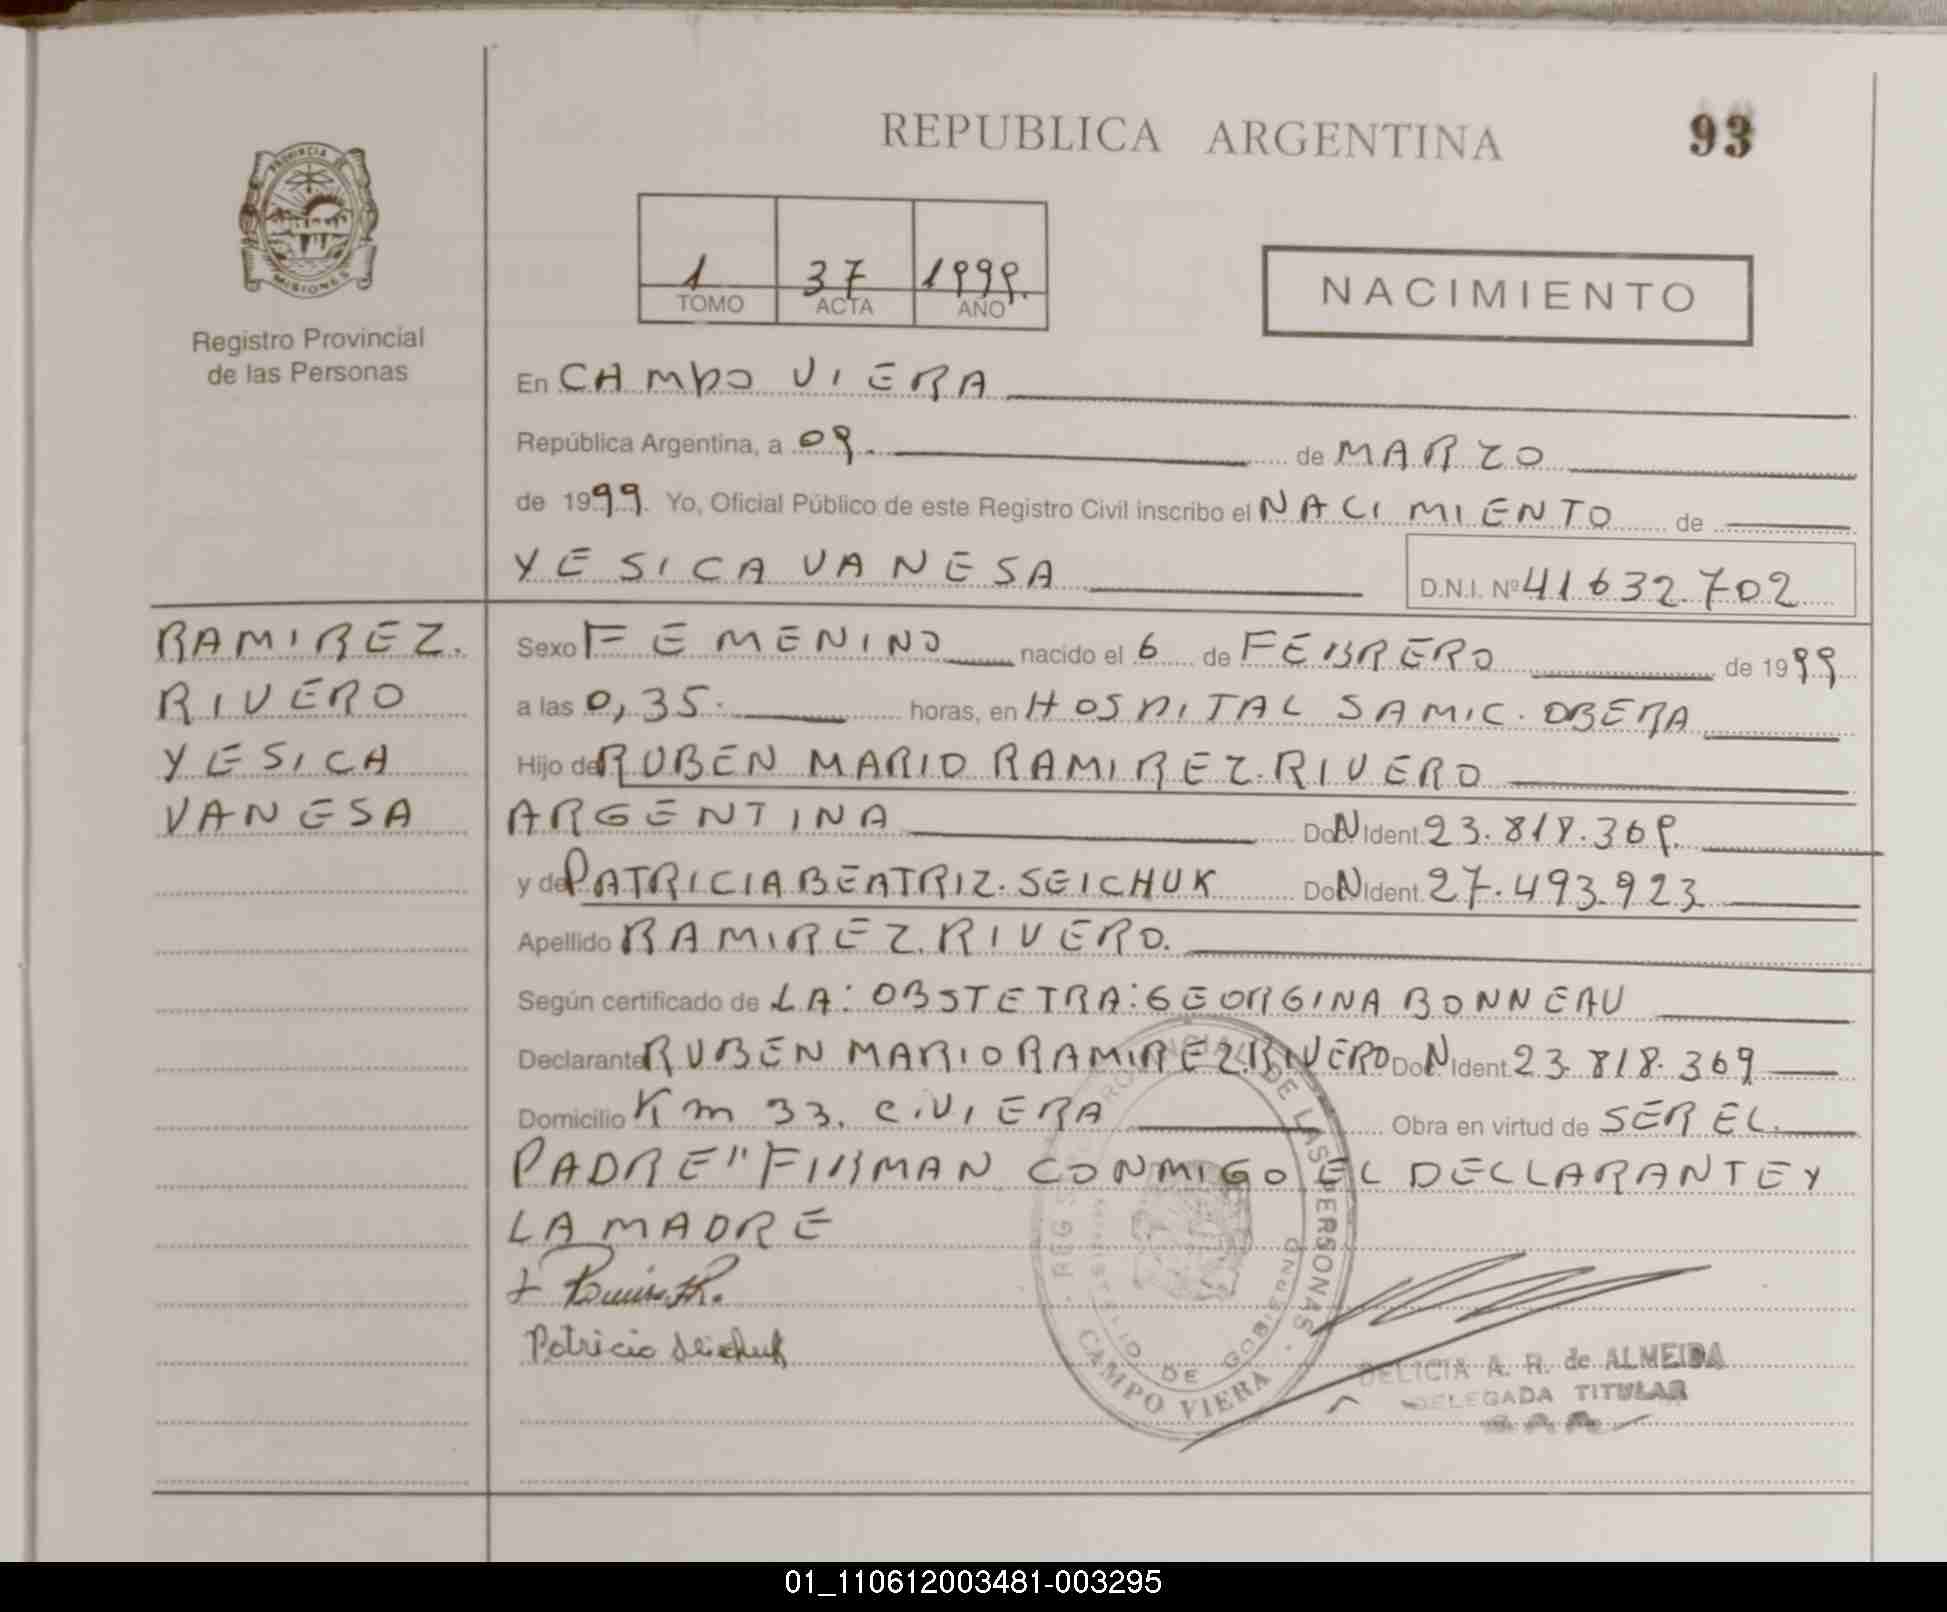 REPUBLICA ARGENTINA
93
PROVINCIA DE MISIONES
Registro Provincial
de las Personas
1 37 1999.
TOMO ACTA AÑO
NACIMIENTO
En CAMPO VIERA
República Argentina, a 09. de MARZO
de 1999. Yo, Oficial Público de este Registro Civil inscribo el NACIMIENTO de
YESICA VANESA
D.N.I. Nº 41632.702
RAMIREZ.
RIVERO
YESICA
VANESA
Sexo FEMENINO nacido el 6 de FEBRERO de 1999
a las 0,35. horas, en HOSPITAL SAMIC. OBERA
Hijo de RUBEN MARIO RAMIREZ. RIVERO
ARGENTINA Do N Ident. 23.818.369.
y de PATRICIA BEATRIZ. SEICHUK Do N Ident. 27.493.923
Apellido RAMIREZ. RIVERO.
Según certificado de LA: OBSTETRA: GEORGINA BONNEAU
Declarante RUBEN MARIO RAMIREZ. RIVERO Do N Ident. 23.818.369
Domicilio Km 33. C. VIERA Obra en virtud de SER EL.
PADRE" FIRMAN CONMIGO EL DECLARANTE Y
LA MADRE
Patricia Seichuk
REGISTRO PROVINCIAL DE LAS PERSONAS
MINISTERIO DE GOBIERNO
CAMPO VIERA
DELICIA A. R. de ALMEIDA
DELEGADA TITULAR
01_110612003481-003295